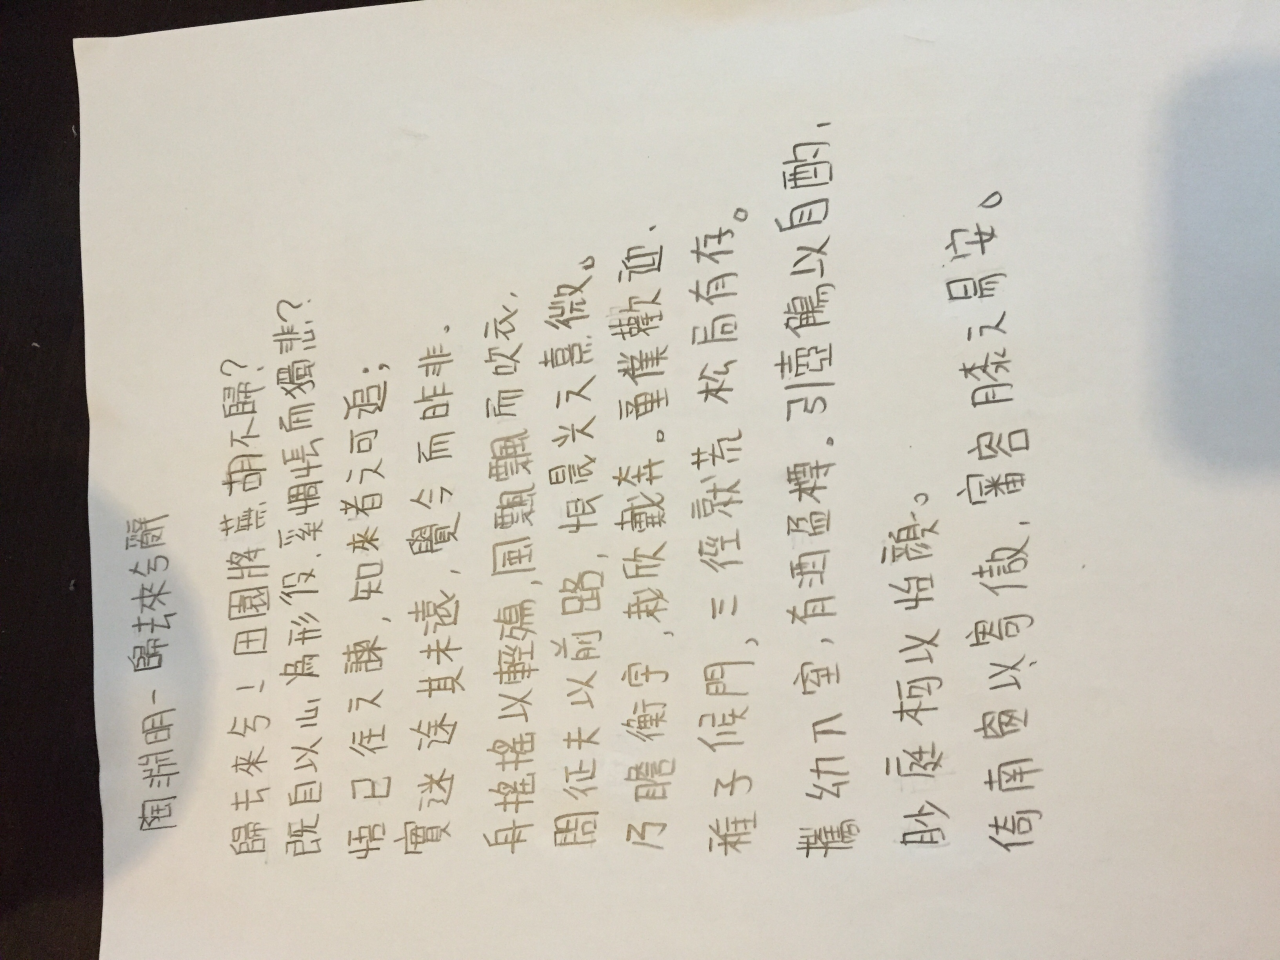 陶淵明-歸去來兮辭
歸去來兮！田園將蕪胡不歸？
既自以心為形役，奚惆悵而獨悲？
悟已往之諫，知來者之可追；
實迷途其未遠，覺今而昨非。
舟搖搖以輕颺，風飄飄而吹衣，
問征夫以前路，恨晨光之熹微。
乃瞻衡宇，載欣載奔。童僕歡迎、
稚子候門，三徑就荒 松局有存。
攜幼入室，有酒盈樽。引壺觴以自酌，
眄庭柯以怡顏。
倚南窗以寄傲，審容膝之易安。